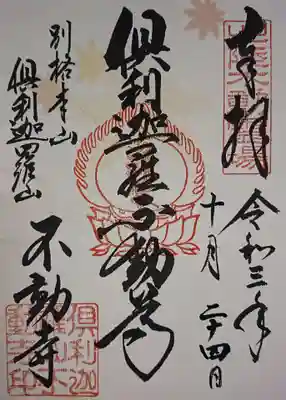 奉拝
令和三年
十月二十四日
俱利迦羅不動尊
別格本山
俱利迦羅山
不動寺